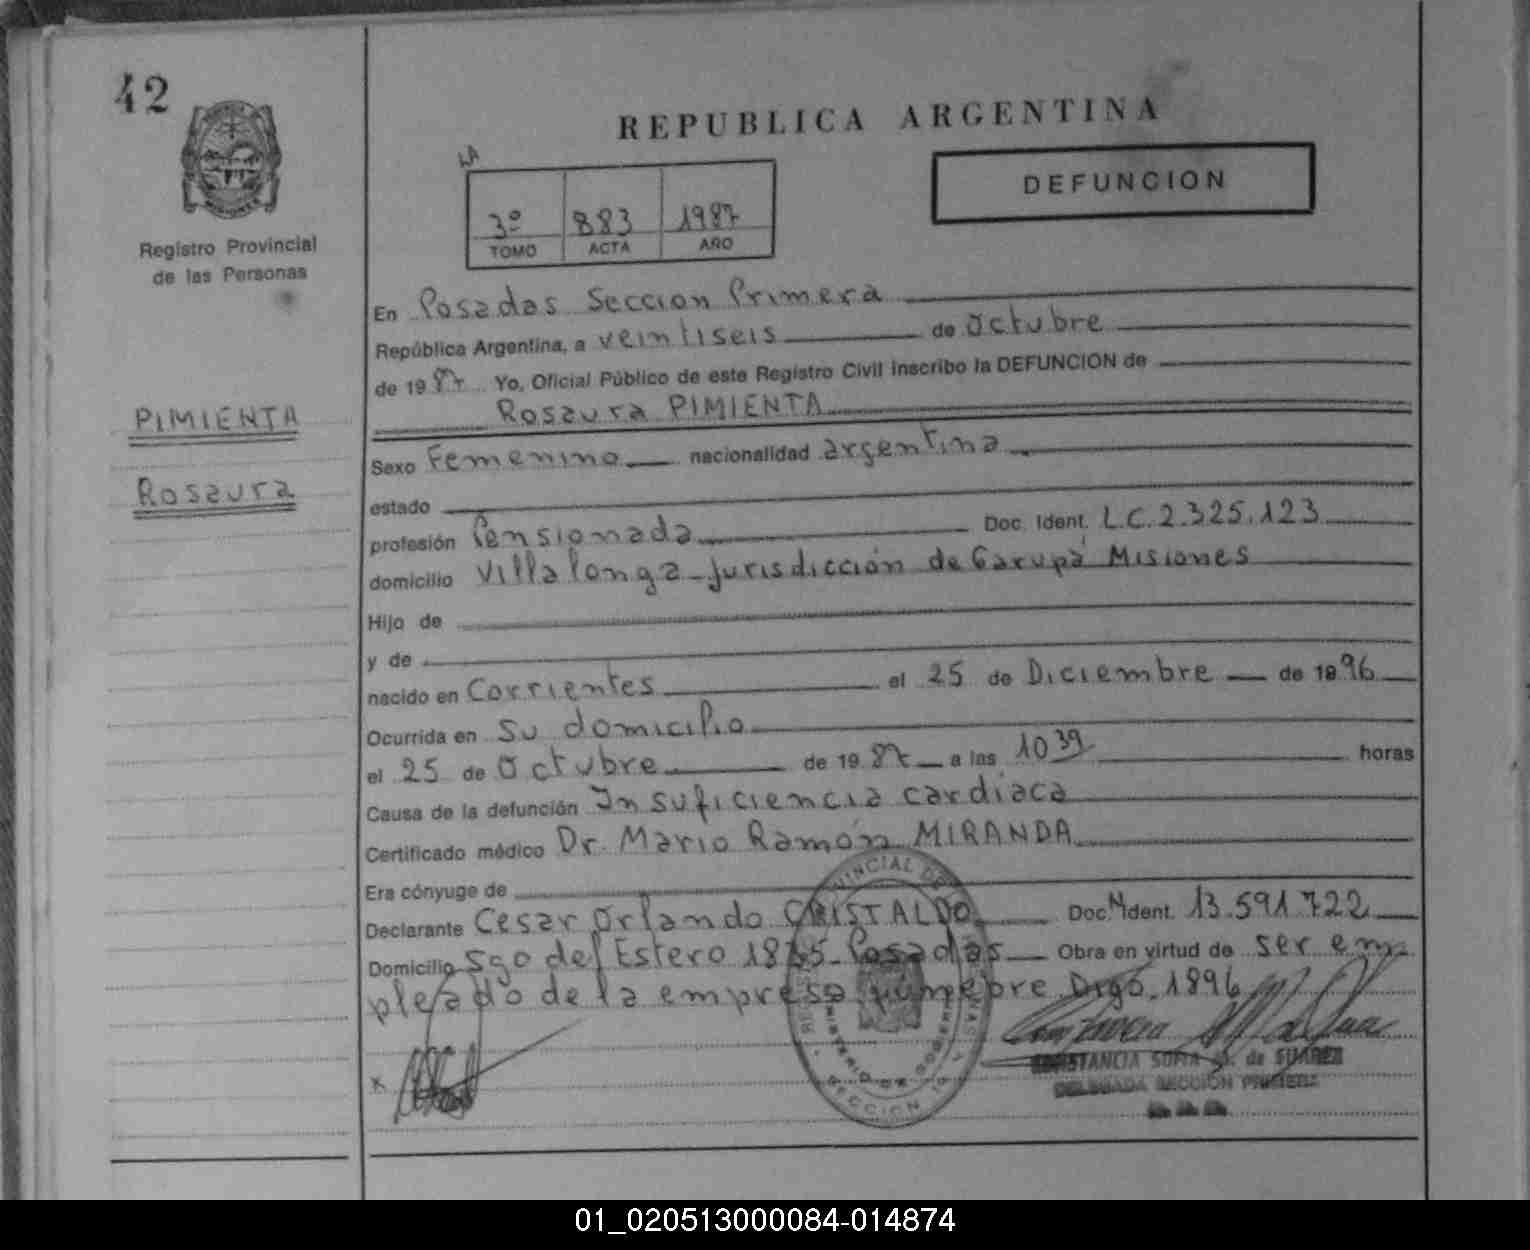 42
MISIONES
Registro Provincial
de las Personas
PIMIENTA
Rosaura
REPUBLICA ARGENTINA
LA
3º 883 1987
TOMO ACTA AÑO
DEFUNCION
En Posadas Seccion Primera
República Argentina, a veintiseis de octubre
de 1987 Yo, Oficial Público de este Registro Civil inscribo la DEFUNCION de
Rosaura PIMIENTA
Sexo Femenino nacionalidad argentina
estado
profesión Pensionada Doc. Ident. L.C. 2.325.123
domicilio Villa longa - Jurisdicción de Garupá Misiones
Hijo de
y de
nacido en Corrientes el 25 de Diciembre de 1896
Ocurrida en su domicilio
el 25 de octubre de 1987 a las 10 39 horas
Causa de la defunción Insuficiencia cardiaca
Certificado médico Dr. Mario Ramón MIRANDA
Era cónyuge de
Declarante Cesar Orlando CRISTALDO Doc. N Ident. 13.591.722
Domicilio Sgo del Estero Posadas Obra en virtud de ser em
pleado de la empresa funebre. 1896
x
CONSTANCIA SOFIA de SUAREZ
DELEGADA SECCION PRIMERA
SECCION 1a
01_020513000084-014874